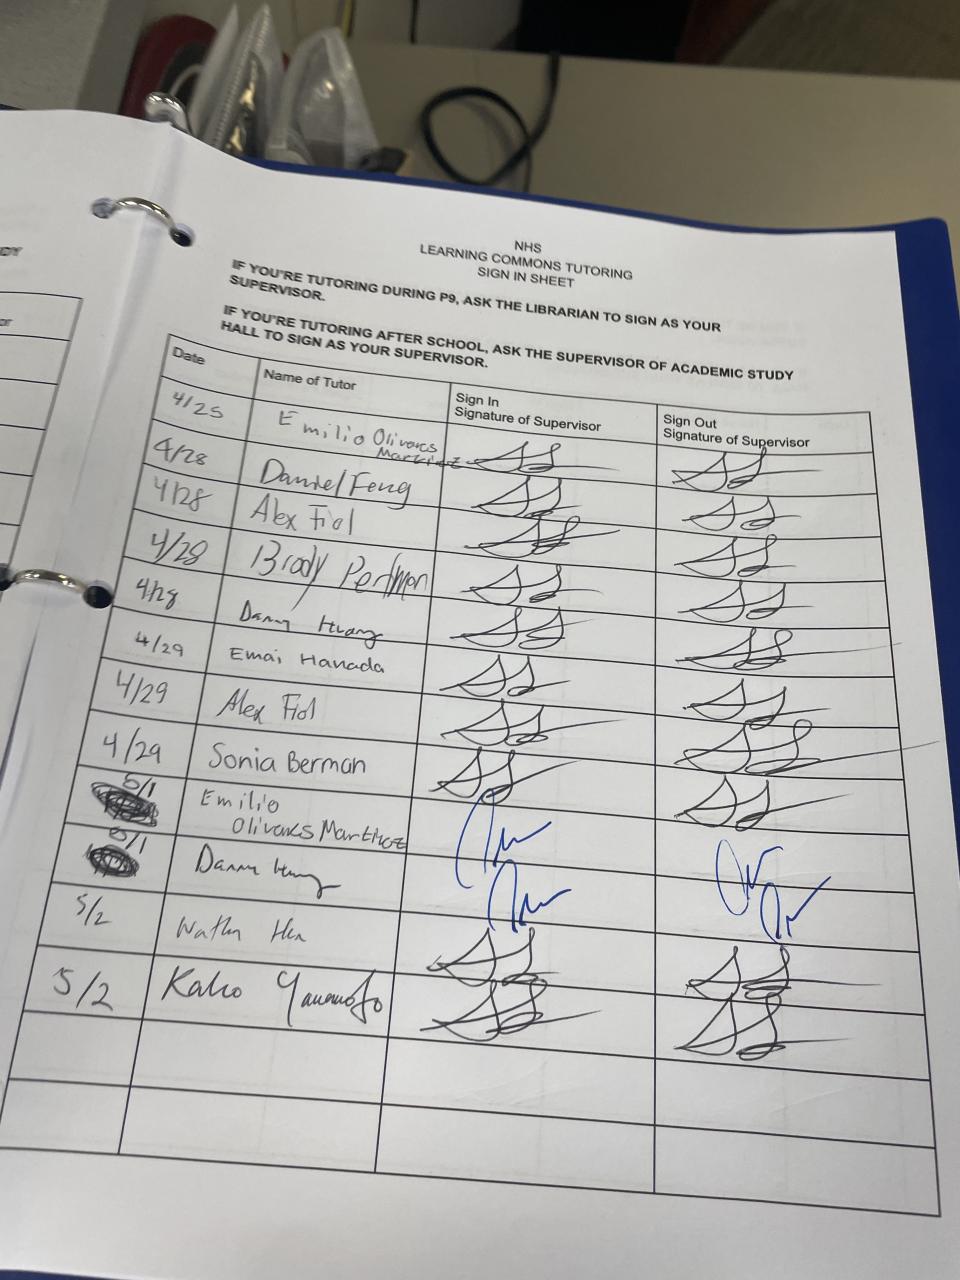 NHS
LEARNING COMMONS TUTORING
SIGN IN SHEET
IF YOU'RE TUTORING DURING P9, ASK THE LIBRARIAN TO SIGN AS YOUR
SUPERVISOR.
IF YOU'RE TUTORING AFTER SCHOOL, ASK THE SUPERVISOR OF ACADEMIC STUDY
HALL TO SIGN AS YOUR SUPERVISOR.
Date
Name of Tutor
Sign In
Signature of Supervisor
Sign Out
Signature of Supervisor
4/25
Emilio Olivares
Martinez
4/28
Daniel Feng
4/28
Alex Fiol
4/28
Brody Perlman
4/28
Danny Huang
4/29
Emai Hanada
4/29
Alex Fiol
4/29
Sonia Berman
5/1
Emilio
Olivares Martinez
5/1
Danny Huang
5/2
5/2
Kaho